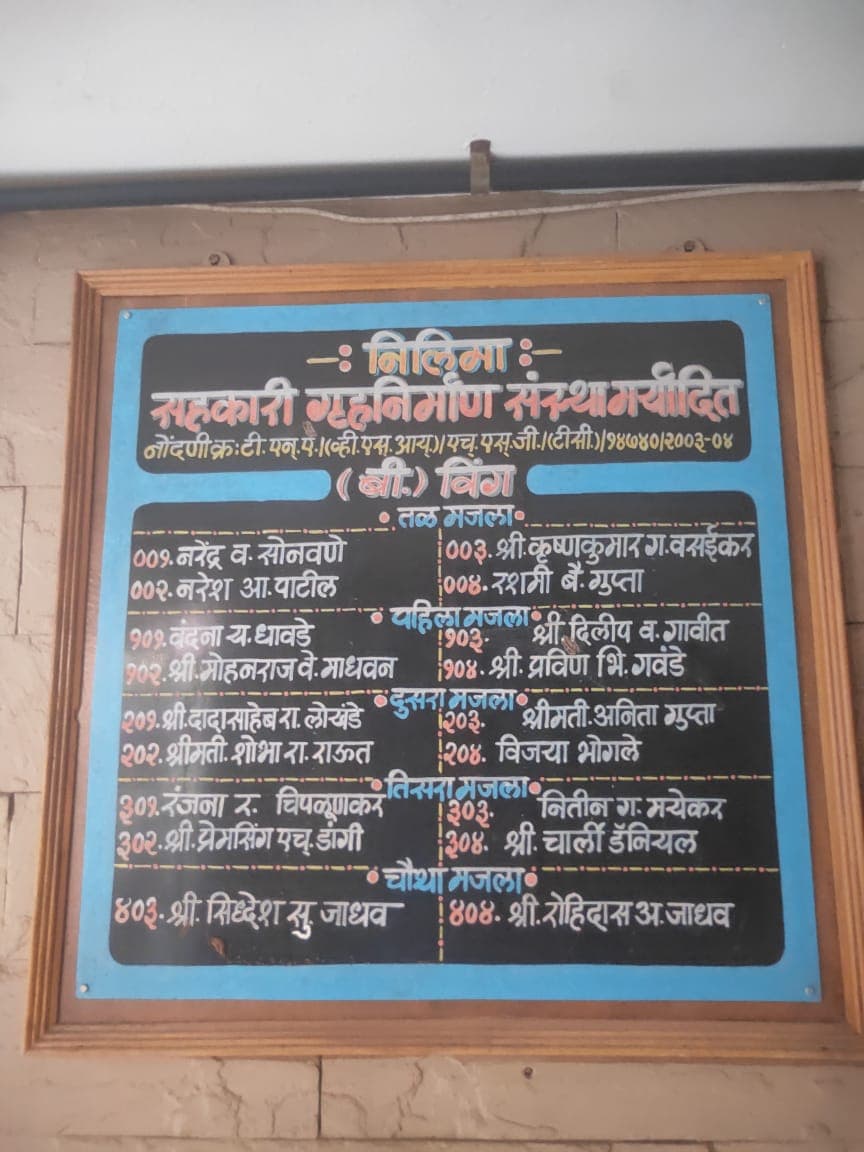 -: निलिमा :-
सहकारी गृहनिर्माण संस्था मर्यादित
नोंदणी क्र: टी. एन्. ए. /(व्ही. एस. आय्)/ एच्. एस्. जी. / (टीसी) / १४७४०/२००३-०४
(बी.) विंग
तळ मजला
००१. नरेंद्र व. सोनवणे ००३. श्री. कृष्णकुमार ग. वसईकर
००२. नरेश आ. पाटील ००४. रशमी बै. गुप्ता
पहिला मजला
१०१. वंदना य. धावडे १०३. श्री दिलीप व. गावीत
१०२. श्री. मोहनराज वे. माधवन १०४. श्री. प्रविण भि. गवंडे
दुसरा मजला
२०१. श्री. दादासाहेब रा. लोखंडे २०३. श्रीमती. अनिता गुप्ता
२०२. श्रीमती. शोभा रा. राऊत २०४. विजया भोगले
तिसरा मजला
३०१. रंजना र. चिपळूणकर ३०३. नितीन ग. मयेकर
३०२. श्री. प्रेमसिंग एच्. डांगी ३०४. श्री. चार्ली डॅनियल
चौथा मजला
४०३. श्री. सिध्देश सु. जाधव ४०४. श्री. रोहिदास अ. जाधव